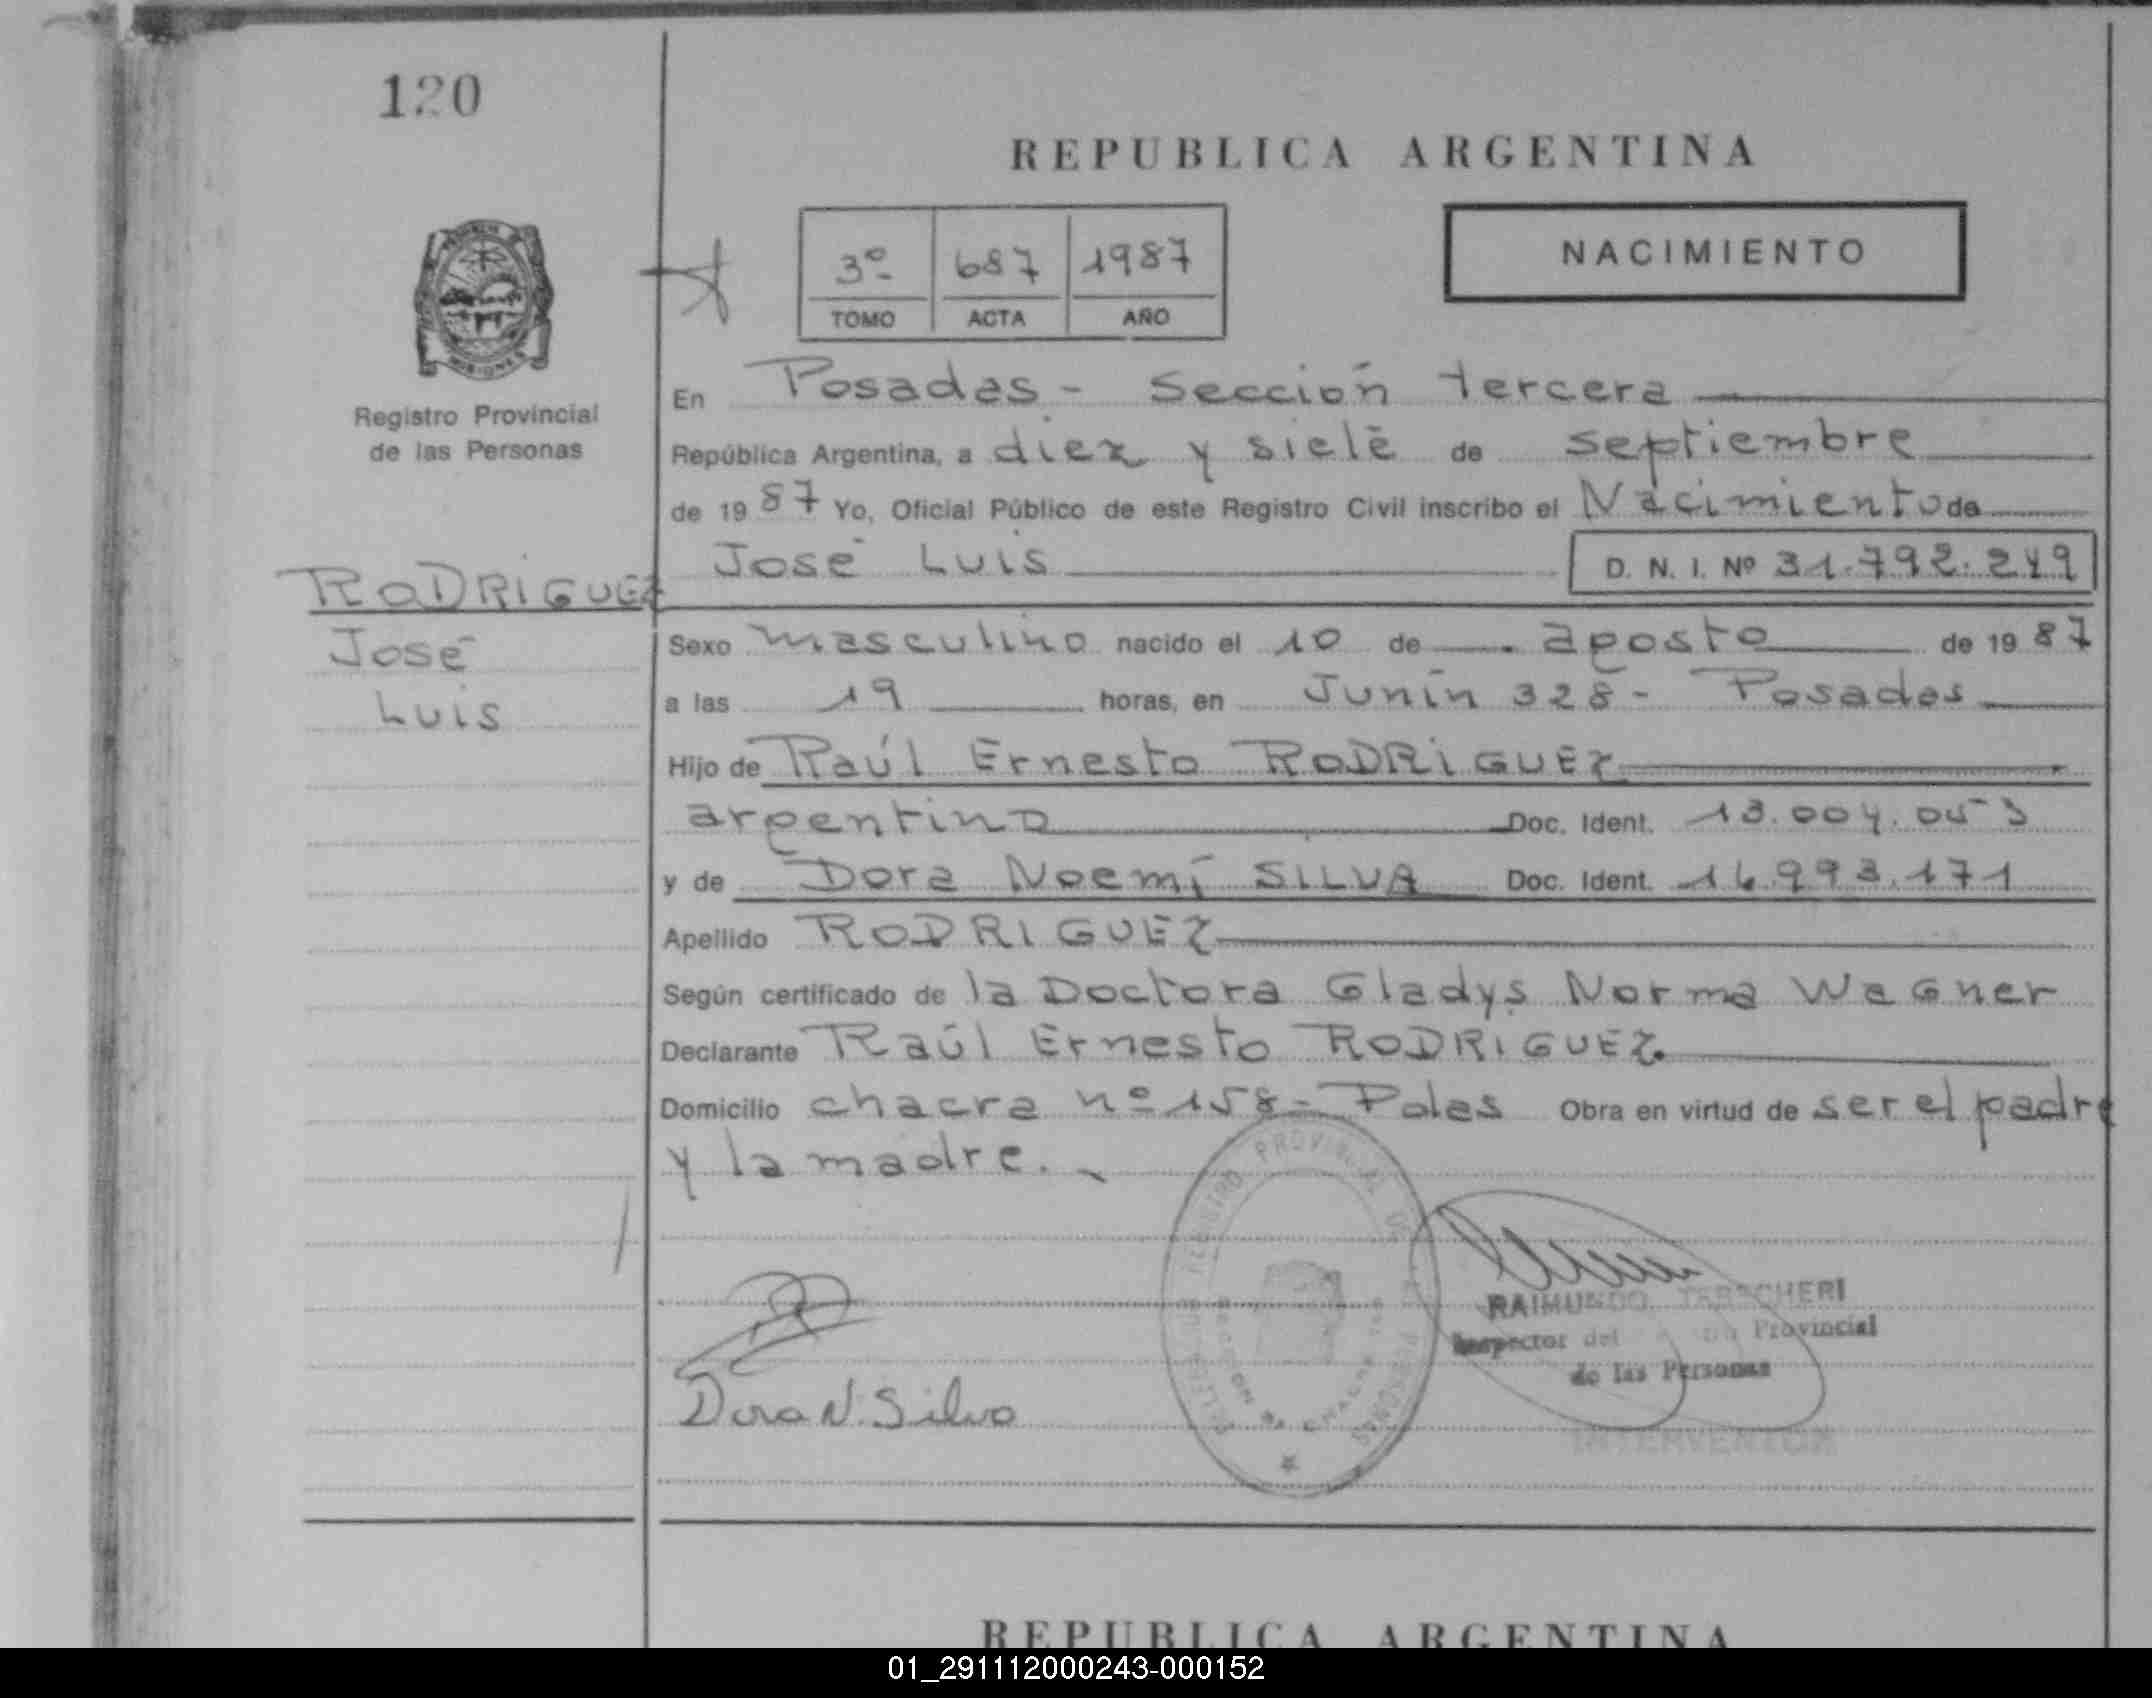 120
REPUBLICA ARGENTINA
3º 687 1987
TOMO ACTA AÑO
NACIMIENTO
Registro Provincial
de las Personas
RODRIGUEZ
José
Luis
En Posadas - Sección tercera
República Argentina, a diez y siete de septiembre
de 1987 Yo, Oficial Público de este Registro Civil inscribo el Nacimiento de
José Luis D. N. I. Nº 31.792.249
Sexo masculino nacido el 10 de agosto de 1987
a las 19 horas, en Junín 328 - Posadas
Hijo de Raúl Ernesto RODRIGUEZ
argentino Doc. Ident. 13.004.053
y de Dora Noemí SILVA Doc. Ident. 16.993.171
Apellido RODRIGUEZ
Según certificado de la Doctora Gladys Norma Wagner
Declarante Raúl Ernesto RODRIGUEZ
Domicilio chacra nº 158 - Pdas Obra en virtud de ser el padre
y la madre.
REGISTRO PROVINCIAL DE
PERSONAS
Dora N. Silva
RAIMUNDO
Inspector del Provincial
de las Personas
INTERVENTOR
REPUBLICA ARGENTINA
01_291112000243-000152